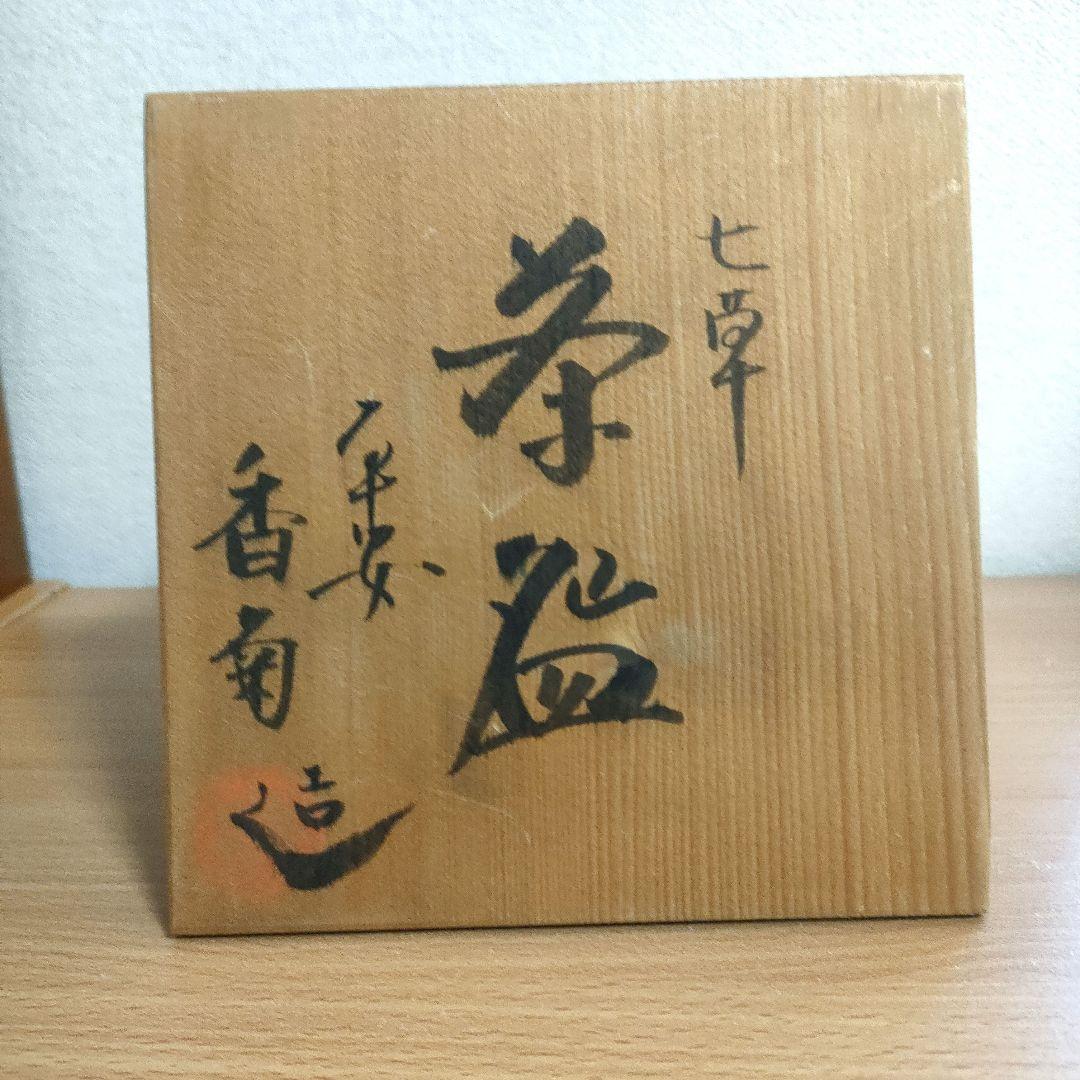 七草
茶盌
平安
香菊
造